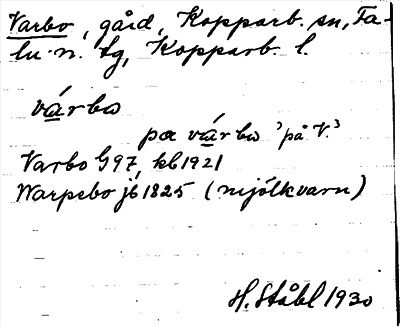 Varbo, gård, Kopparb. sn, Fa-
lu n. tg, Kopparb. l.
várbo
pa várbo 'på V.'
Varbo G97, kb 1921
Warpebo jb 1825 (mjölkvarn)
H. Ståhl 1930